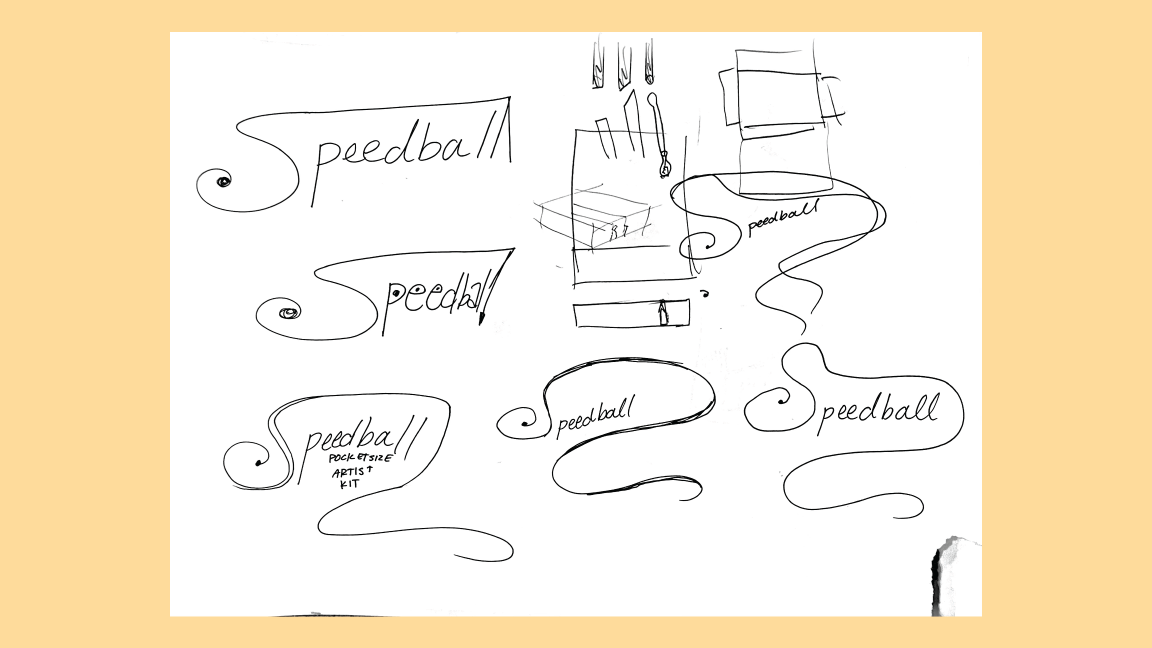 Speedball
Speedball
Speedball
Speedball
POCKETSIZE
ARTIST
KIT
Speedball
Speedball